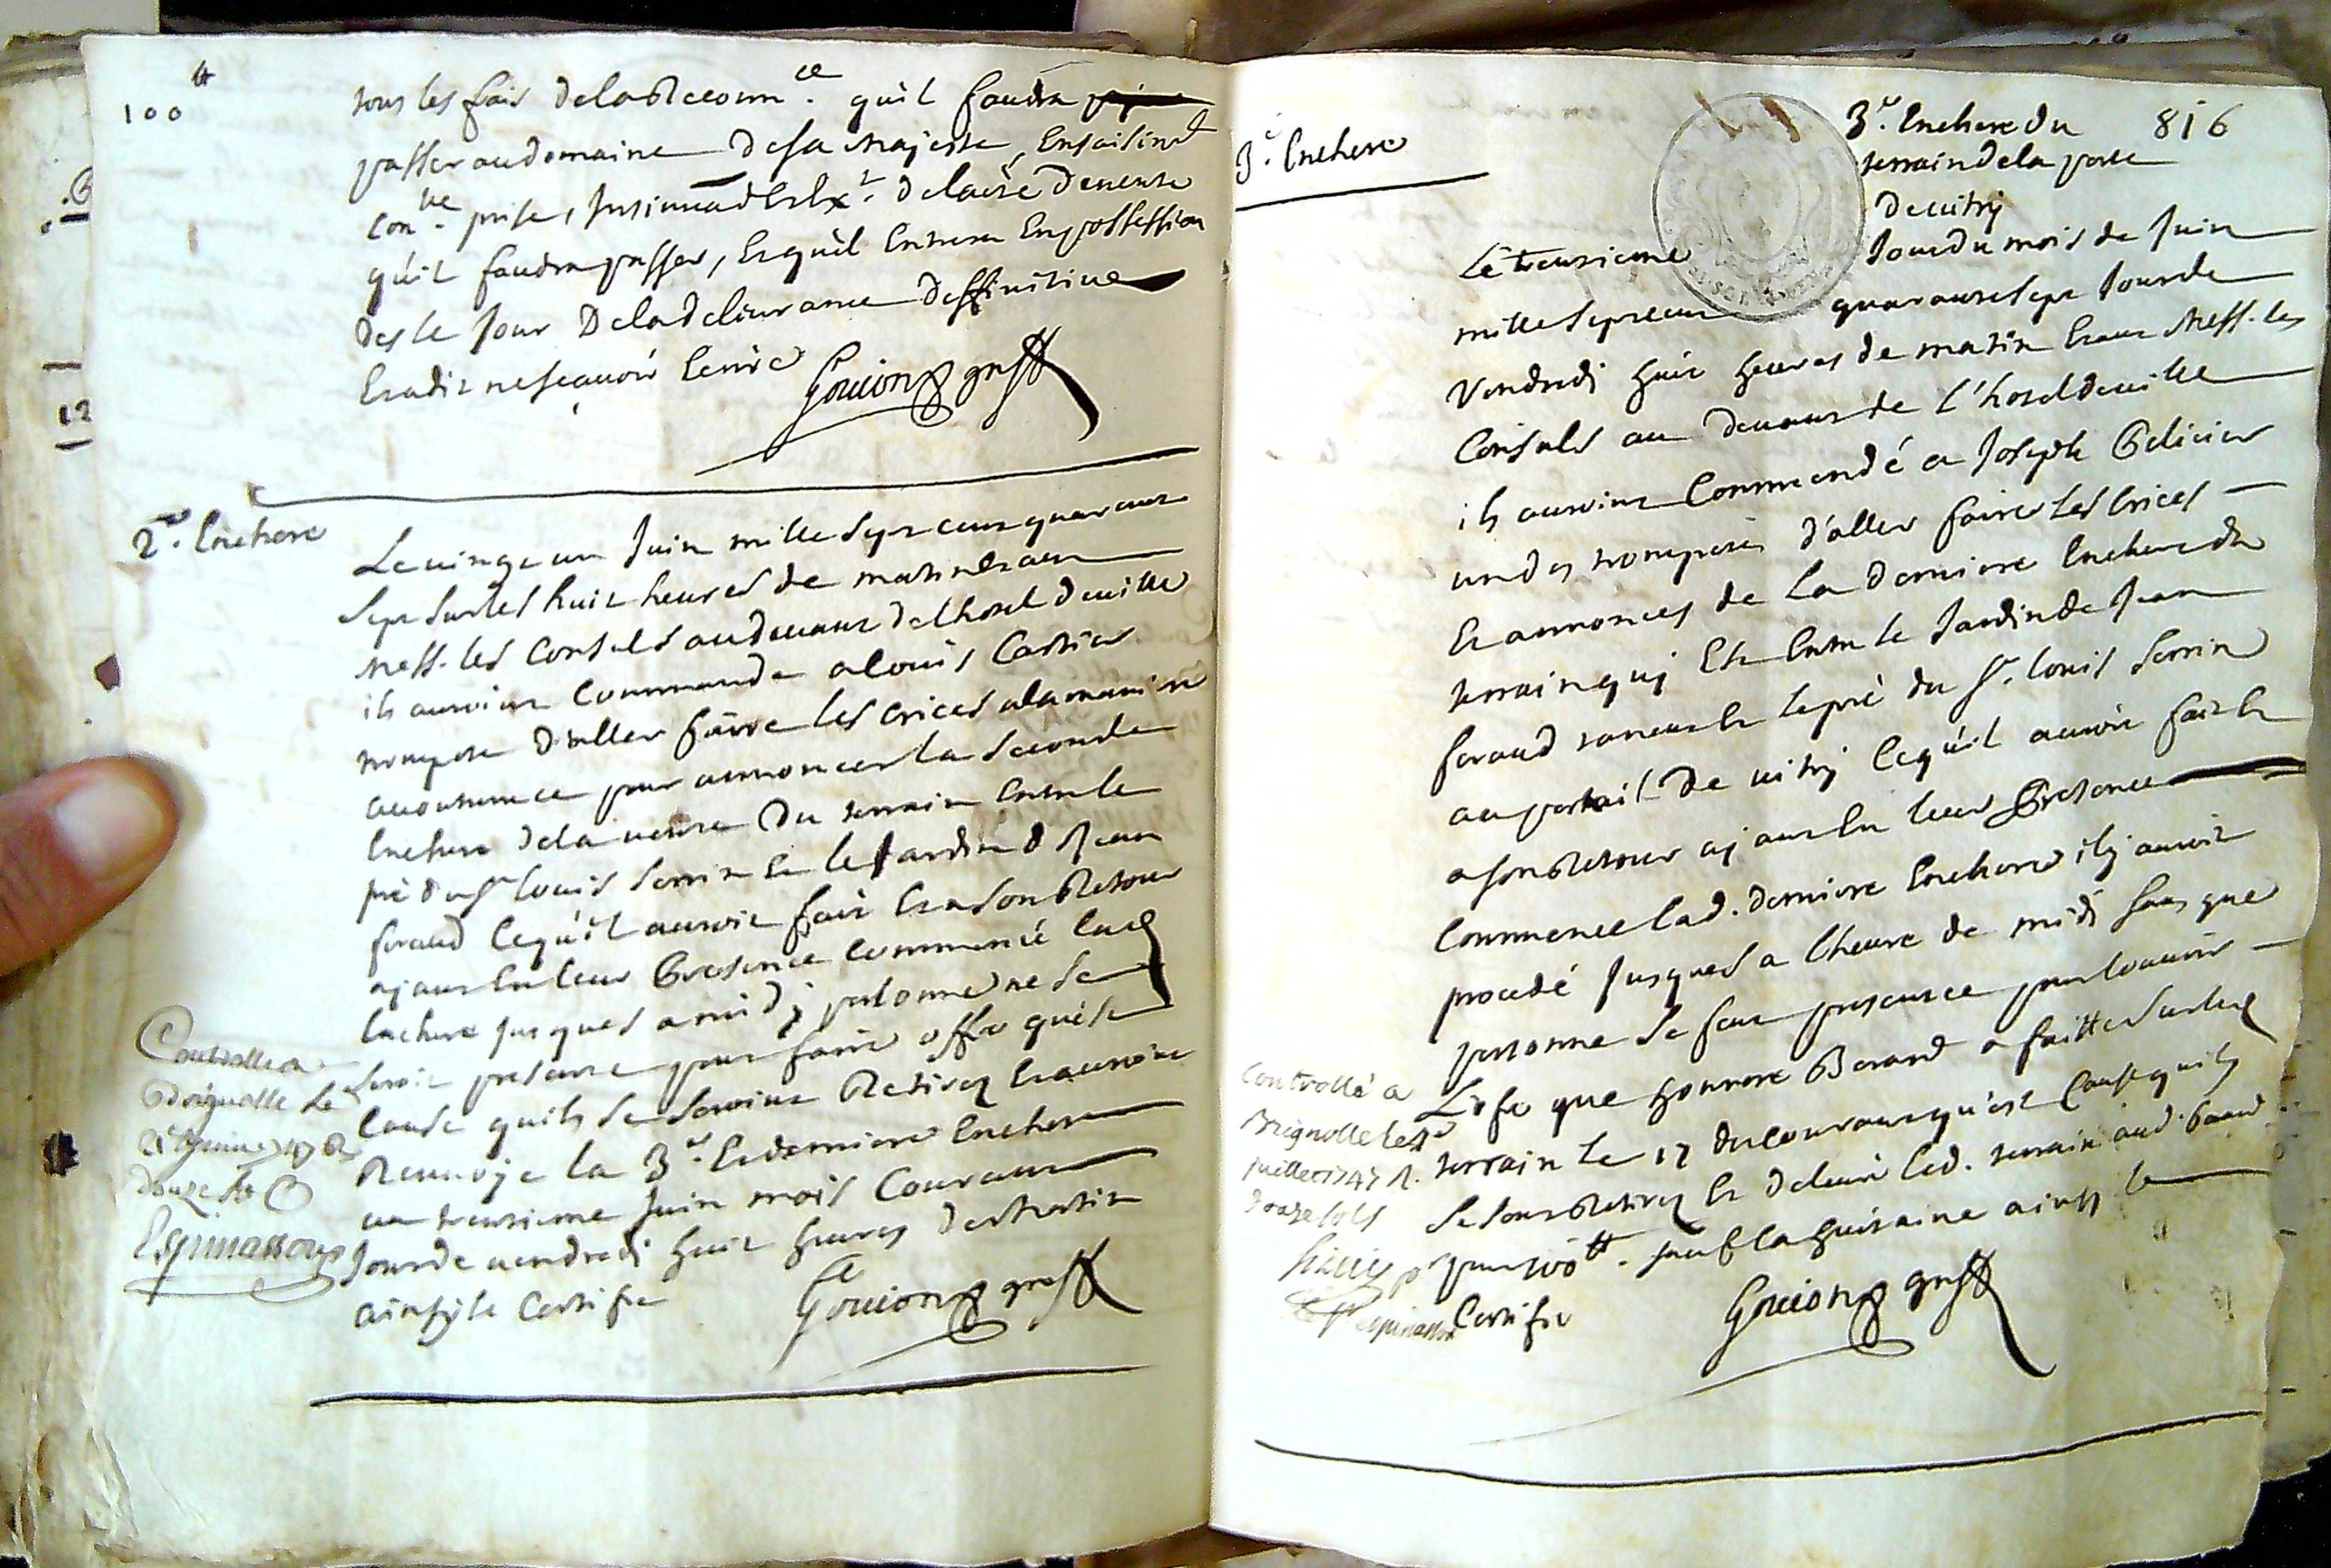 100tt
tous les fais de la Reconn.ce quil faudra
passer au domaine de sa majesté, Ensaisined
con.ve prise, Insinuad Et Ext. de lacte de vente
qu'il faudra passer, Et quil Entrera En possession
des le Jour De la delivrance deffinitive
Et a dit ne scavoir Ecrire
Gouiong greff
2e. Enchere
Le vingt un Juin mille Sept cens quarante
Sept Sur les huit heures de matin Etant
Mess. les Consuls au devant de lhotel de ville
ils auroint Commandé a louis Castier
trompete d'aller faire les crices a la maniere
accoutumee pour annoncer la Seconde
Enchere de la vente Du terrain Entre le
pré du Sr louis Serrin Et le Jardin de Jean
feraud Ce qu'il auroit fait Et a Son Retour
ajant En leur Presence commencé lad
Enchere Jusques a midj personne ne Se
Seroit presenté pour faire offre qu'est
Cause quils Se Seroint Retirez Et auroint
Renvoje la 3e. Et derniere Enchere
au trensieme Juin mois Courant
Jour de vendredi huit heures de Matin
ainsy le Certifie
Gouiong greff
Controlle a
Brignolle Le
douze s
Espinassoux
3e. Enchere du 816
terrain de la porte
de vitrj
3e. Enchere
Le trensieme Jour du mois de Juin
mille Sept cens quarante Sept Jour de
Vendredi huit heures de matin Etant Mess. les
Consuls au devant de l'hotel de ville
ils auroint Commendé a Joseph Pelicier
un des trompetes d'aller faire Les Crices
Et annonces de La derniere Enchere du
terrain quj Est Entre le Jardin de Jean
feraud Et le pré du Sr. louis Serrin
au portail De vitrj Ce qu'il auroit fait Et
a son Retour aj ant En leur Presence
Commence lad. derniere Enchere ilj auroit
procedé Jusques a lheure de midi Sans que
personne Se soit presentee pour
L'ofre que honnore Berard a faitte Sur led
terrain le 17 du Courant qu'est Cause quils
Se Sont Retirez Et delivré led. terrain aud. Beraud
pour 100tt. sauf la huitaine ainsy le
Certifie
Gouiong greff
Controllé a
Brignolle le
juillet 1747 R.
douze sols